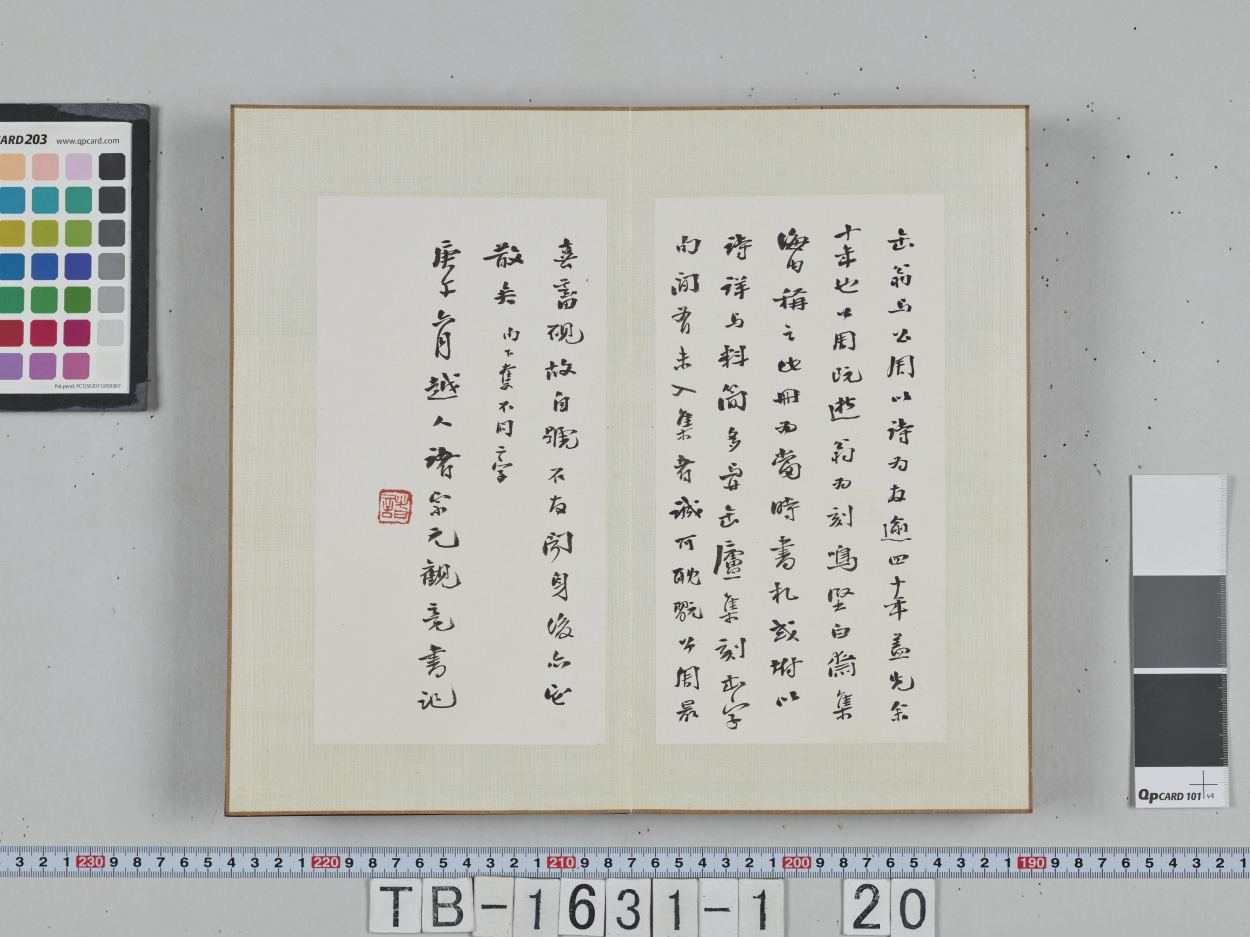 缶翁与公周以詩为友逾四十年蓋先余
十年也公周既逝翁为刻鳴堅白齋集
海内稱之此冊为當時書札或附以
詩詳与料简多與缶廬集刻本字
句间有未入集者誠可耽翫公周最
喜蓄硯故自號石友闻身後亦它
散矣 句下奪不同二字
庚午六月越人諸宗元觀竟書記
CARD 203 www.qpcard.com
QPCARD 101 v4
3 2 1 230 9 8 7 6 5 4 3 2 1 220 9 8 7 6 5 4 3 2 1 210 9 8 7 6 5 4 3 2 1 200 9 8 7 6 5 4 3 2 1 190 9 8 7 6 5 4 3 2 1
TB-1631-1 20